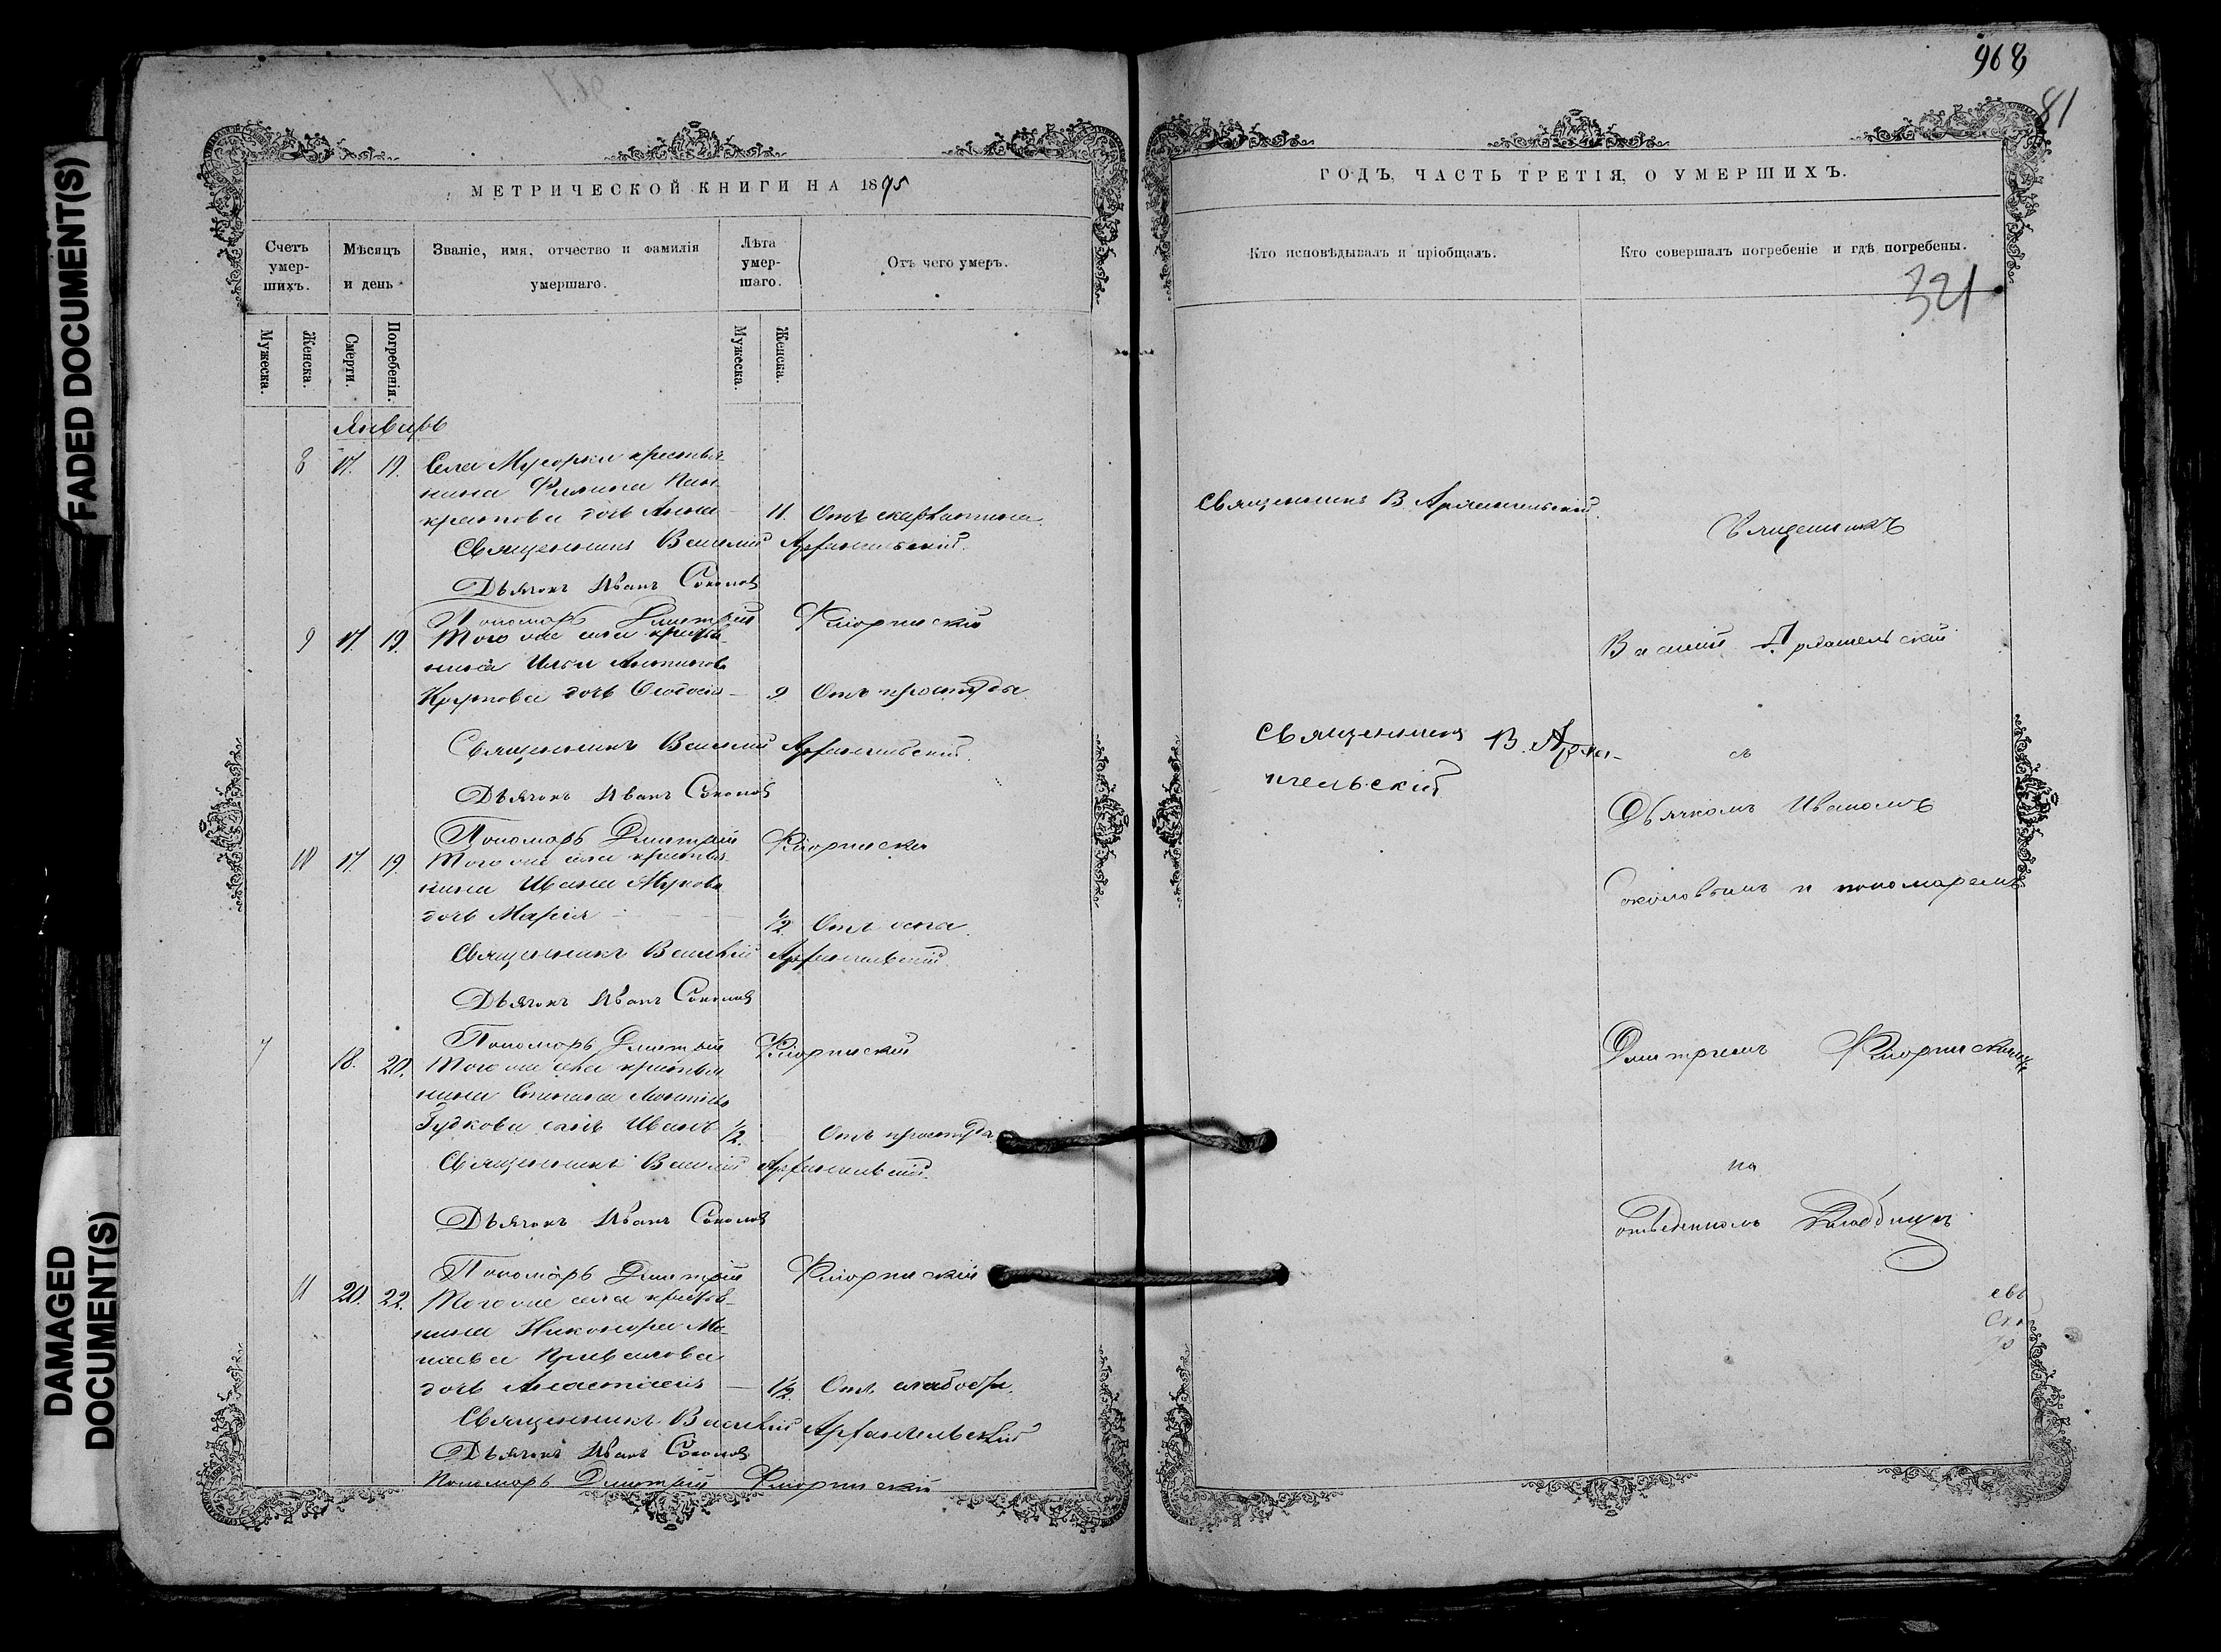 968
81
МЕТРИЧЕСКОЙ КНИГИ НА 1875
ГОДЪ, ЧАСТЬ ТРЕТІЯ, О УМЕРШИХЪ.
Счетъ умер-шихъ.
Мѣсяцъ и день
Званіе, имя, отчество и фамилія умершаго.
Лѣта умер-шаго.
Отъ чего умеръ.
Кто исповѣдывалъ и пріобщалъ.
Кто совершалъ погребеніе и гдѣ погребены.
321
Мужеска.
Женска.
Смерти.
Погребенія.
Мужеска.
Женска.
Январь
8 17. 19. Села Мусорки крестья-
нина Филипа Пан-
кратова дочь Анна 11. Отъ скарлатины.
Священникъ Василій Архангельскій.
Дьячокъ Иванъ Соколовъ
Пономарь Дмитрій Флоринскій
9 17. 19. Того же села крестья-
нина Ильи Антипова
Круткова дочь Феодосія 9 Отъ простуды.
Священникъ Василій Архангельскій.
Дьячокъ Иванъ Соколовъ
Пономарь Дмитрій Флоринскій
10 17. 19. Того же села крестья-
нина Ивана Жукова
дочь Марія 1/2 Отъ оспы.
Священникъ Василій Архангельскій.
Дьячокъ Иванъ Соколовъ
Пономарь Дмитрій Флоринскій
7 18. 20. Того же села крестья-
нина Степана
Гудкова сынъ Иванъ 1/2. Отъ простуды
Священникъ Василій Архангельскій.
Дьячокъ Иванъ Соколовъ
Пономарь Дмитрій Флоринскій
11 20. 22. Того же села крестья-
нина Никонора Ма-
Привалова
дочь Анастасія 1/2. Отъ слабости.
Священникъ Василій Архангельскій
Дьячокъ Иванъ Соколовъ
Пономарь Дмитрій Флоринскій
Священникъ В. Архангельскій.
Священникъ В. Арха-
нгельскій
Священникъ
Василій Архангельскій
съ
Дьячкомъ Иваномъ
Соколовымъ и пономаремъ
Дмитріемъ Флоринскимъ
на
отведенномъ кладбищѣ